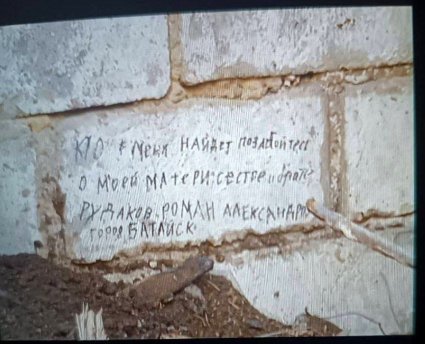 КТО Меня НАЙДЕТ ПОЗАБОЙТЕСЬ
О МОЕЙ МАТЕРИ:СЕСТРЕ И брате
РУДАКОВ. РОМАН АЛЕКСАНДРО
город БАТАЙСК